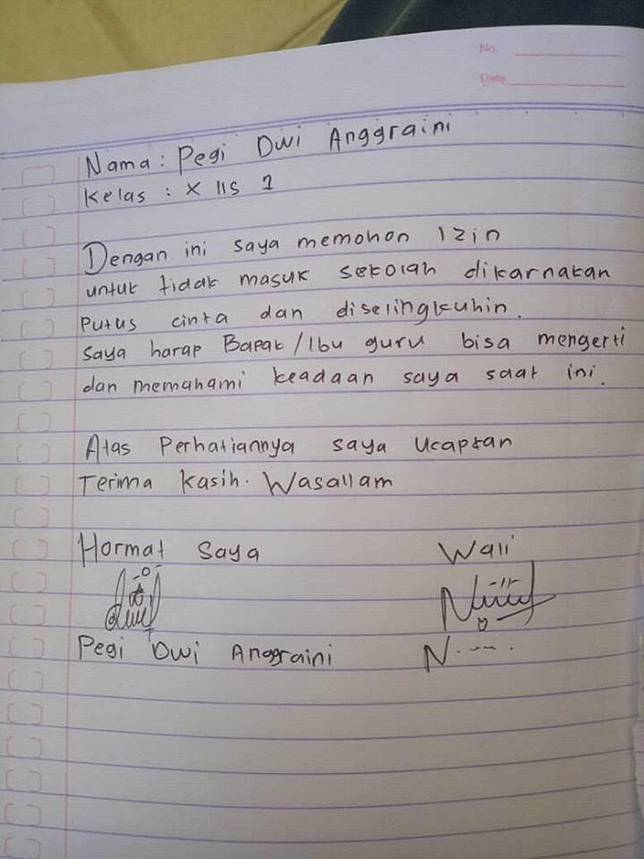 No.
Date
Nama : Pegi Dwi Anggraini
Kelas : X IIS 1
Dengan ini saya memohon izin
untuk tidak masuk sekolah dikarnakan
Putus cinta dan diselingkuhin.
Saya harap Bapak/Ibu guru bisa mengerti
dan memahami keadaan saya saat ini.
Atas Perhatiannya saya Ucapkan
Terima kasih. Wasallam
Hormat Saya Wali
Pegi Dwi Anggraini N.....